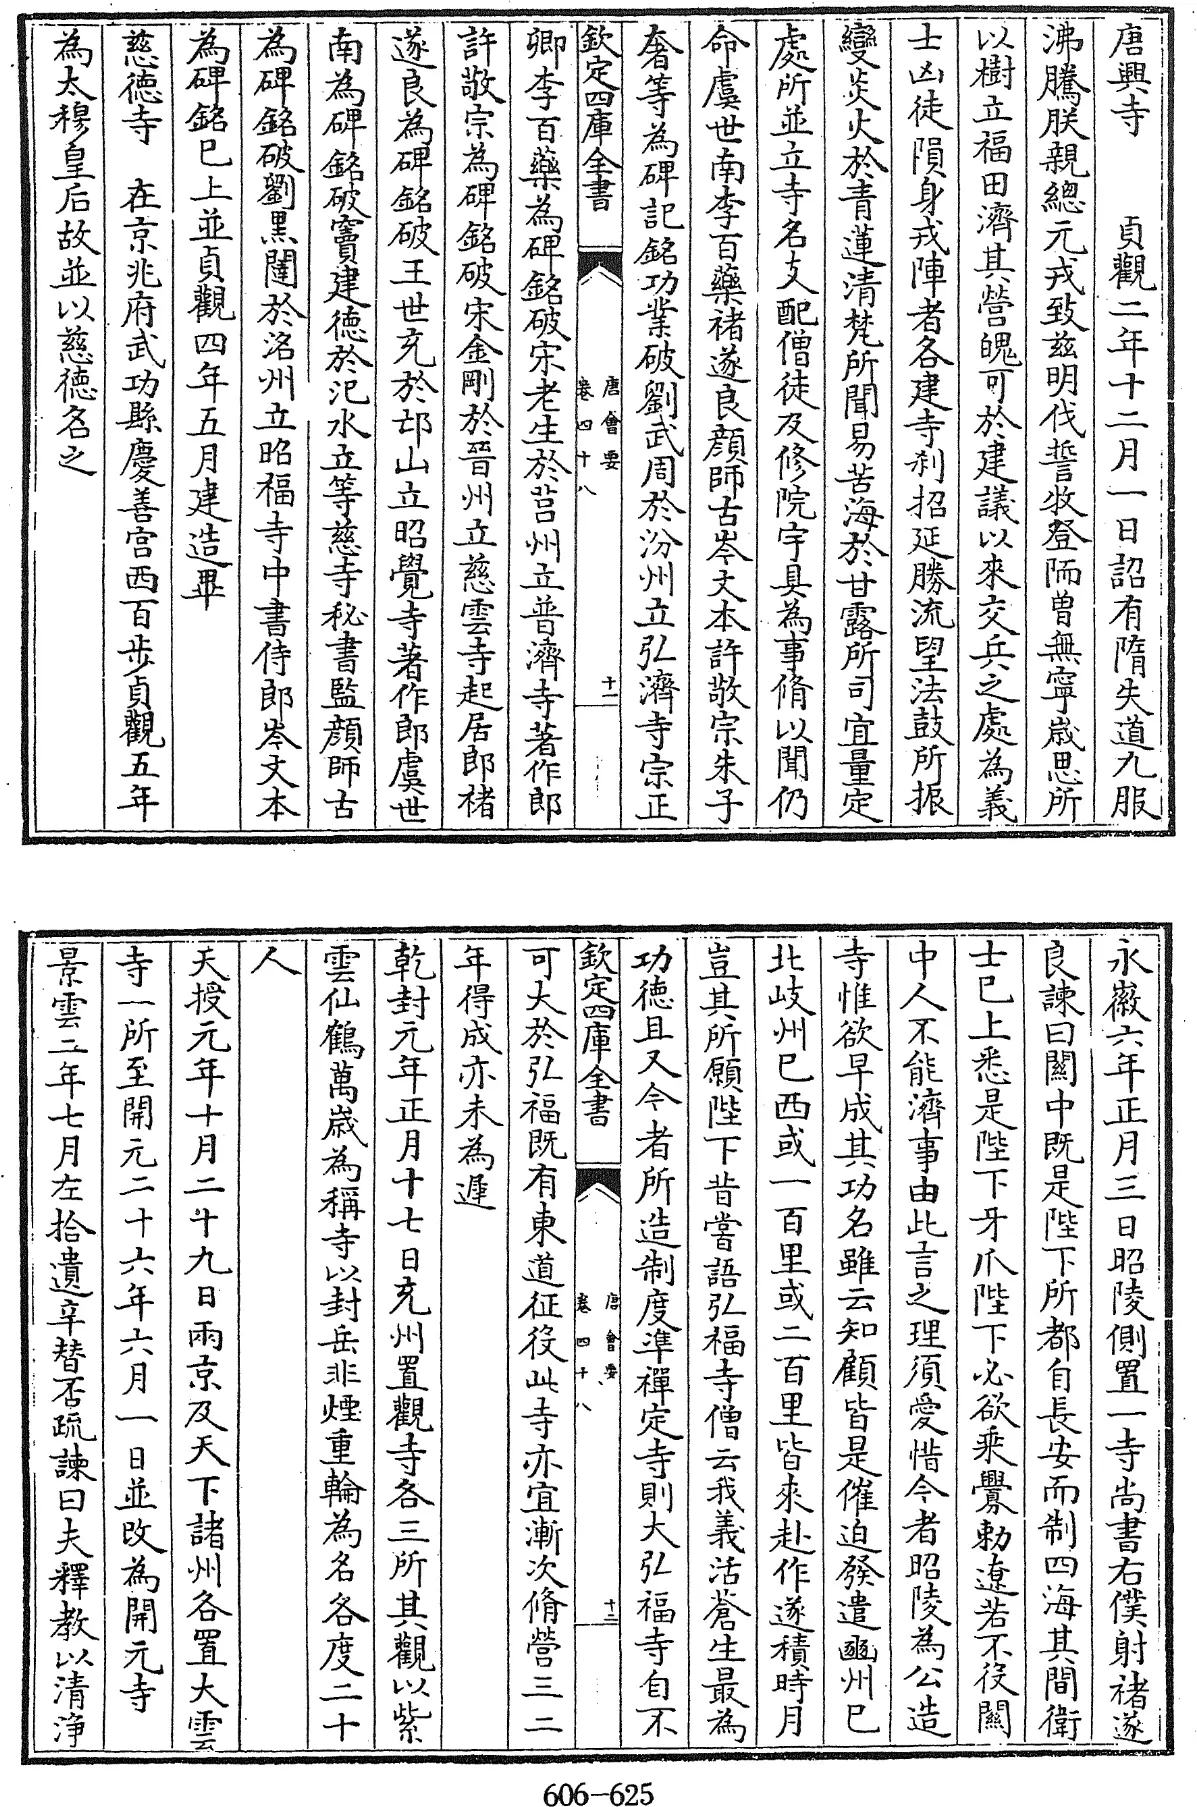 唐興寺　貞觀二年十二月一日詔有隋失道九服
沸騰朕親總元戎致茲明伐誓牧登陑曽無寧嵗思所
以樹立福田濟其營魄可於建議以來交兵之處為義
士凶徒隕身戎陣者各建寺刹招延勝流望法鼓所振
變炎火於青蓮清梵所聞易苦海於甘露所司宜量定
處所並立寺名支配僧徒及修院宇具為事脩以聞仍
命虞世南李百藥褚遂良顔師古岑文本許敬宗朱子
奢等為碑記銘功業破劉武周於汾州立弘濟寺宗正
欽定四庫全書
唐會要
卷四十八
十一
卿李百藥為碑銘破宋老生於莒州立普濟寺著作郎
許敬宗為碑銘破宋金剛於晉州立慈雲寺起居郎褚
遂良為碑銘破王世充於邙山立昭覺寺著作郎虞世
南為碑銘破竇建德於汜水立等慈寺秘書監顔師古
為碑銘破劉黒闥於洺州立昭福寺中書侍郎岑文本
為碑銘已上並貞觀四年五月建造畢
慈德寺　在京兆府武功縣慶善宮西百步貞觀五年
為太穆皇后故並以慈德名之
永徽六年正月三日昭陵側置一寺尚書右僕射褚遂
良諫曰關中既是陛下所都自長安而制四海其間衛
士已上悉是陛下牙爪陛下必欲乘釁勅遼若不役關
中人不能濟事由此言之理須愛惜今者昭陵為公造
寺惟欲早成其功名雖云知顧皆是催迫發遣豳州已
北岐州已西或一百里或二百里皆來赴作遂積時月
豈其所願陛下昔嘗語弘福寺僧云我義活蒼生最為
功德且又今者所造制度準禪定寺則大弘福寺自不
欽定四庫全書
唐會要
卷四十八
十二
可大於弘福既有東道征役此寺亦宜漸次脩營三二
年得成亦未為遲
乾封元年正月十七日兖州置觀寺各三所其觀以紫
雲仙鶴萬嵗為稱寺以封岳非煙重輪為名各度二十
人
天授元年十月二十九日兩京及天下諸州各置大雲
寺一所至開元二十六年六月一日並改為開元寺
景雲二年七月左拾遺辛替否疏諫曰夫釋教以清淨
606-625